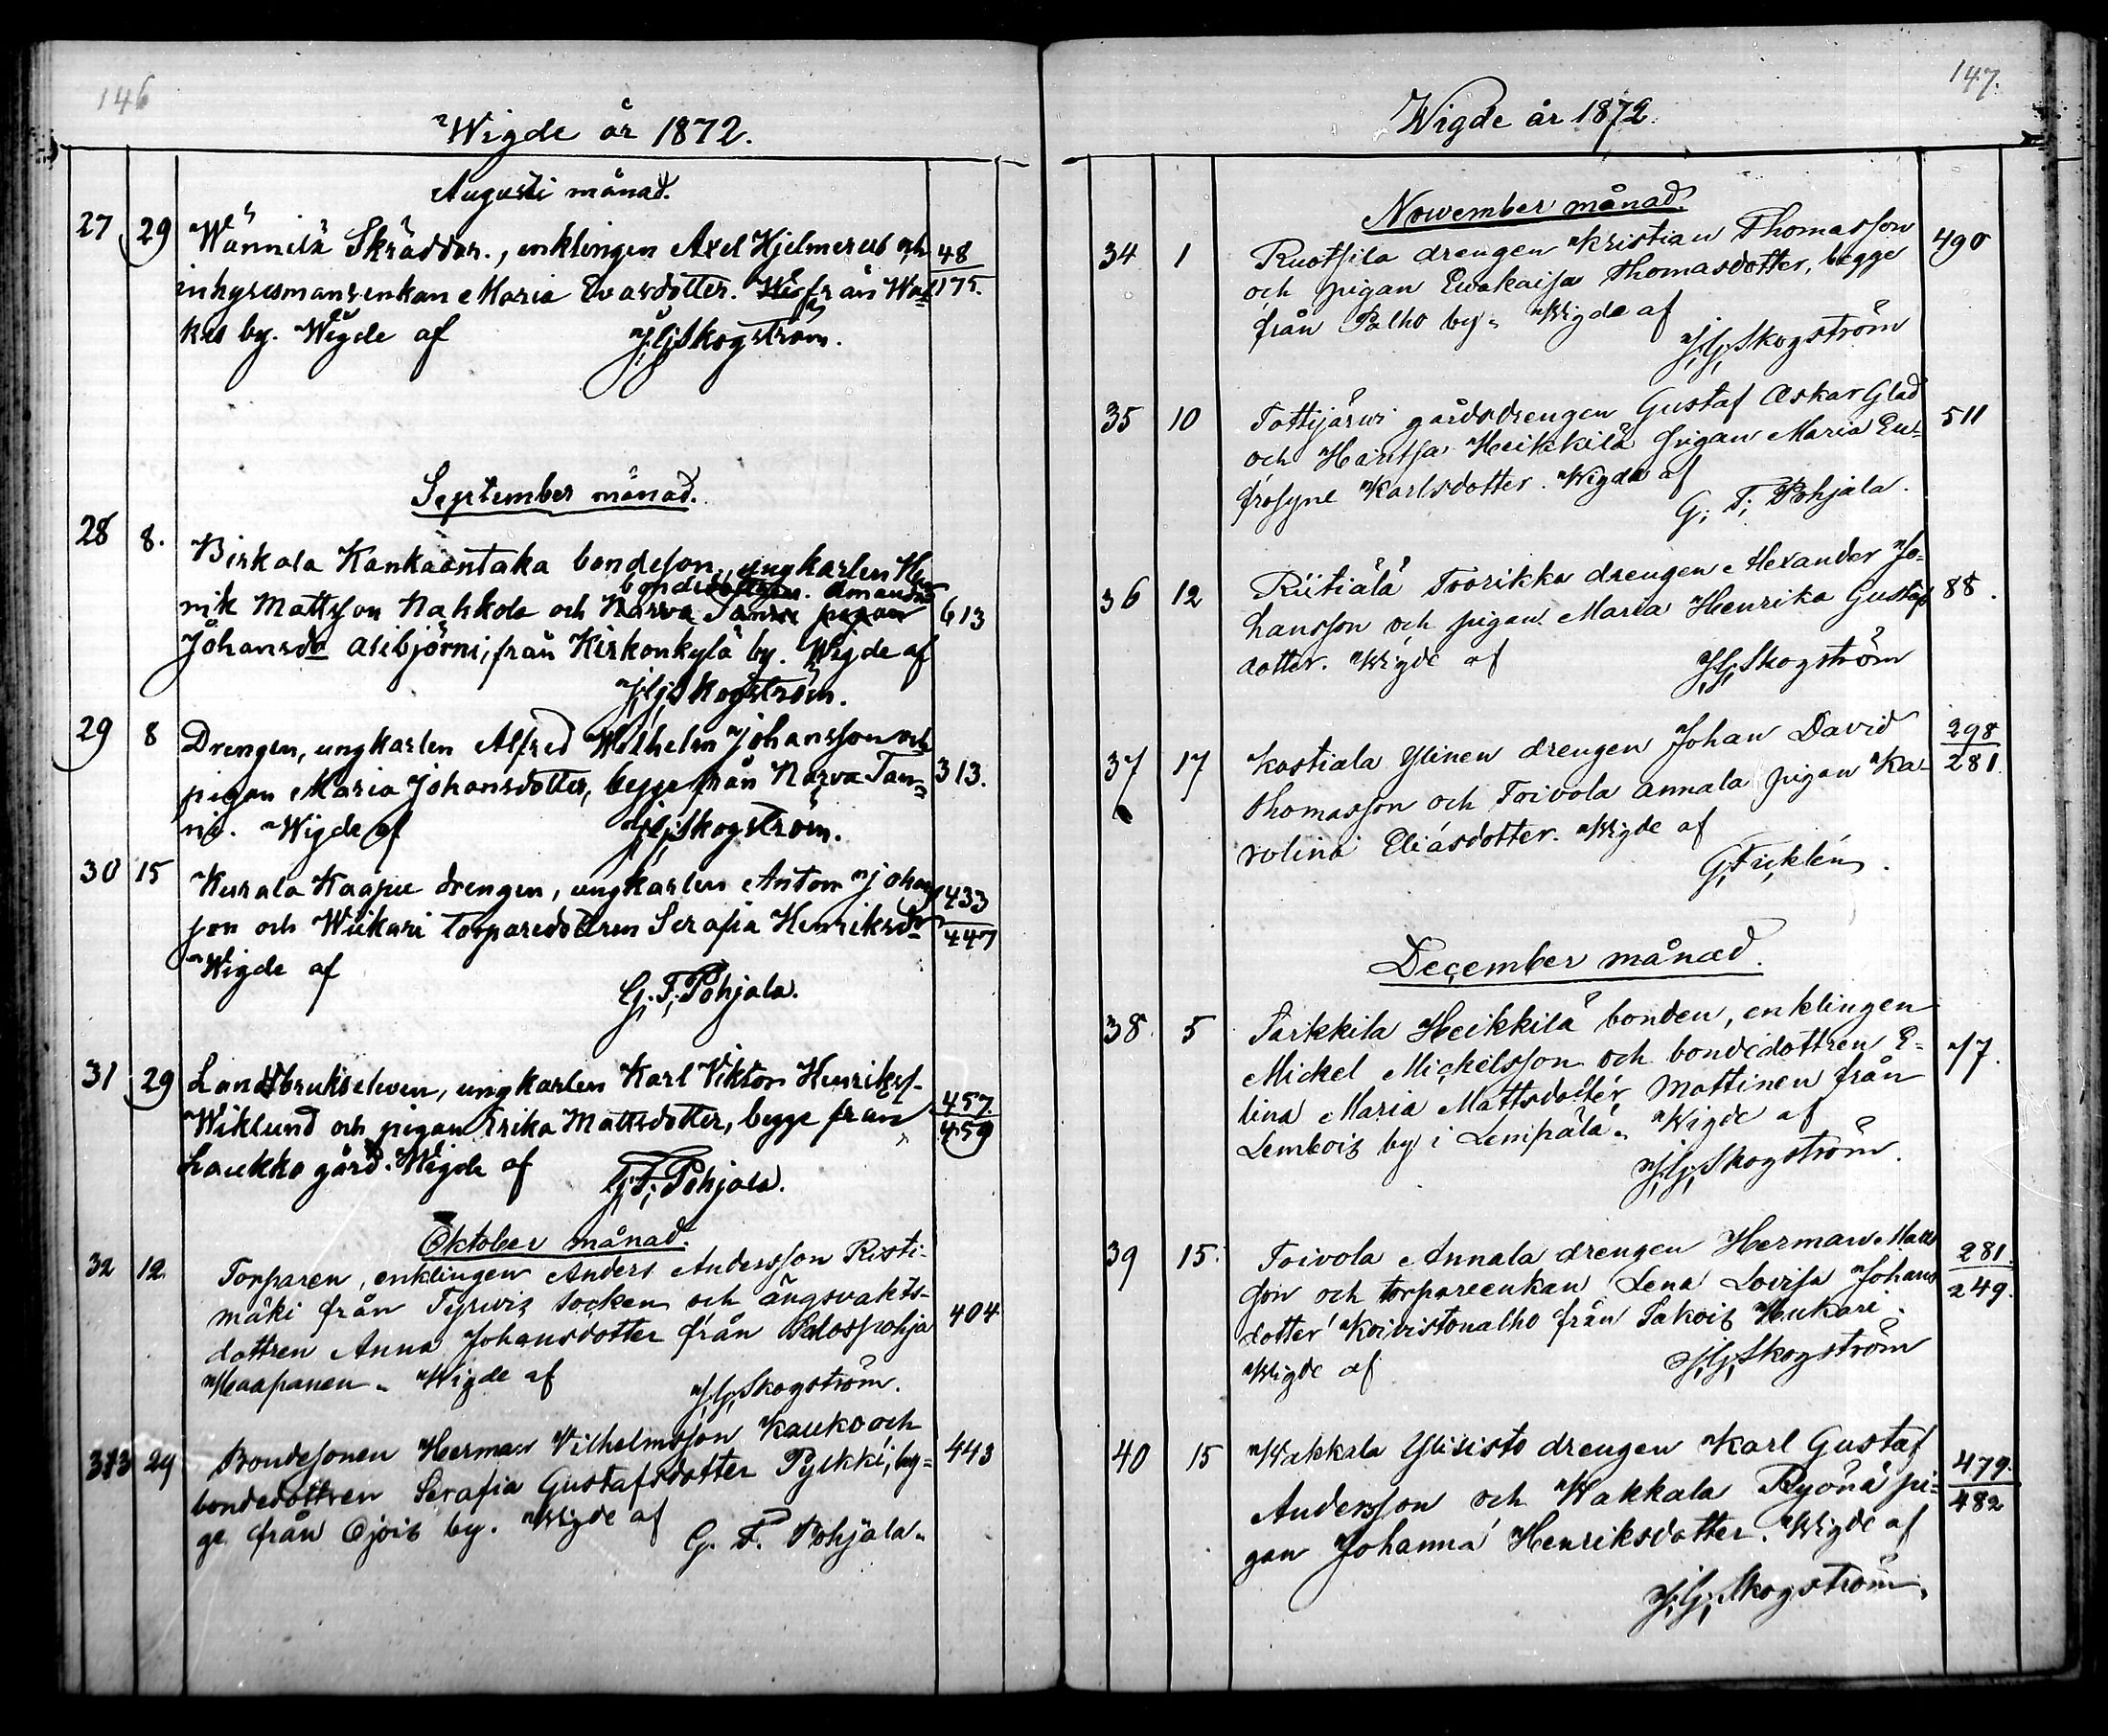 146
Wigde år 1872.
Augusti månad.
27 29 Wännilä Skräddar., enklingen Axel Hjelmerus och 48
inhysesmansenkan Maria Evasdotter. från Wak= 175.
kis by. Wigde af J. G. Skogström.
September månad.
28 8. Birkala Kankaantaka bondeson, ungkarlen Hen
bondedottren. Amanda
rik Mattsson Nahkola och Narva Tanni pigan 613
Johansdr Alibjörni, från Kirkonkylä by. Wigde af
J. G. Skogström.
29 8 Drengen, ungkarlen Alfred Wilhelm Johansson och
pigan Maria Johansdotter, begge från Narva Tan= 313.
ni. Wigde af J. G. Skogström.
30 15 Kurala Kaapu drengen, ungkarlen Anton Johans 433
son och Wiikari torparedottren Serafia Henriksdr 447
Wigde af
G. F. Pohjala.
31 29 Landtbrukseleven, ungkarlen Karl Viktor Henrikss.
Wiklund och pigan Erika Mattsdotter, begge från 457
459
Laukko gård. Wigde af G. F. Pohjala.
Oktober månad.
32 12. Torparen, enklingen Anders Andersson Risti-
mäki från Tyrwis socken och ängsvakts-
dottren Anna Johansdotter från Palospohja 404
Haapanen. Wigde af J. G. Skogström.
33 29 Bondesonen Herman Vilhelmsson Kauko och 443
bondedottren Serafia Gustafsdotter Pylkki, beg=
ge från Ojois by. Wigde af G. F. Pohjala.
147.
Wigde år 1872.
November månad.
34 1 Ruotsila drengen Kristian Thomasson 490
och pigan Evakaisa Thomasdotter, begge
från Palho by. Wigde af
J. G. Skogström
35 10 Tottijärwi gårdsdrengen Gustaf Oskar Glad 511
och Haintsa Heikkilä pigan Maria Eu=
frosyne Karlsdotter. Wigde af
G. F. Pohjala.
36 12 Riitiälä Toorikka drengen Alexander Jo= 88.
hansson och pigan Maria Henrika Gustafs
dotter. Wigde af J. G. Skogström
37 17 Kostiala Ylinen drengen Johan David 298
Thomasson och Toivola Annala pigan Ka- 281
rolina Eliasdotter. Wigde af
G. Ficklén.
December månad.
38 5 Sarkkila Heikkilä bonden, enklingen
Mickel Mickelsson och bondedottren E- 77.
lina Maria Mattsdotter Mattinen från
Lembois by i Lempälä. Wigde af
J. G. Skogström.
39 15. Toivola Annala drengen Herman Matts 281.
son och torpareenkan Lena Lovisa Johans 249.
dotter Koivistonalho från Sakois Hukari.
Wigde af J. G. Skogström
40 15 Wakkala Ylisisto drengen Karl Gustaf 479.
Andersson och Wakkala Ryönä pi= 482
gan Johanna Henriksdotter. Wigde af
J. G. Skogström.